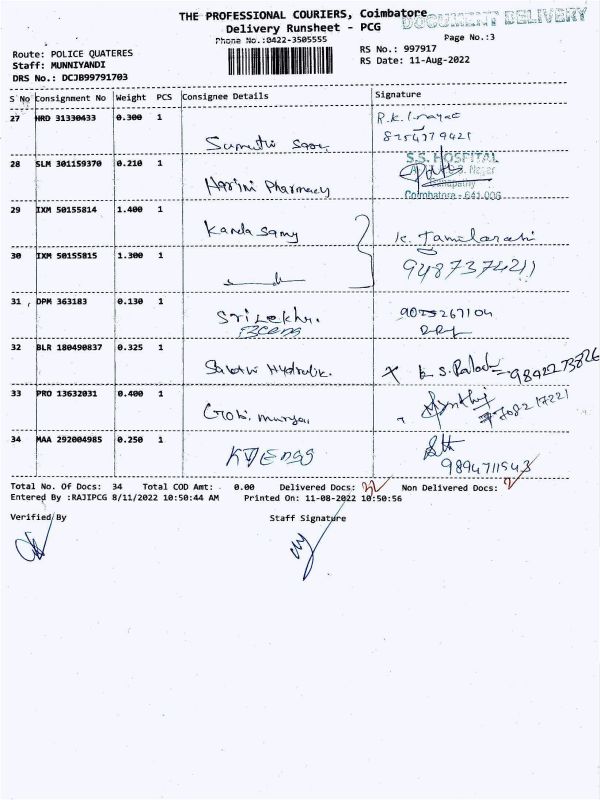 THE PROFESSIONAL COURIERS, Coimbatore
DOCUMENT DELIVERY
Delivery Runsheet - PCG
Phone No.:0422-3505555
Page No.:3
Route: POLICE QUATERES
RS No.: 997917
Staff: MUNNIYANDI
RS Date: 11-Aug-2022
DRS No.: DCJB99791703
S No Consignment No Weight PCS Consignee Details Signature
27 HRD 31330433 0.300 1
28 SLM 301159370 0.210 1 Harini Pharmacy
S.S. HOSPITAL
Nagar
Ganapathy
Coimbatore - 641 006
29 IXM 50155814 1.400 1 Kanda Samy
K. Tamilarasi
30 IXM 50155815 1.300 1
9487374211
31 DPM 363183 0.130 1 Srilekha
32 BLR 180490837 0.325 1 Sakthi Hydraulik.
9842273826
33 PRO 13632031 0.400 1 Gobi
34 MAA 292004985 0.250 1 KTV Engg
9894711543
Total No. Of Docs: 34 Total COD Amt: 0.00 Delivered Docs: 32 Non Delivered Docs: 2
Entered By :RAJIPCG 8/11/2022 10:50:44 AM Printed On: 11-08-2022 10:50:56
Verified By Staff Signature